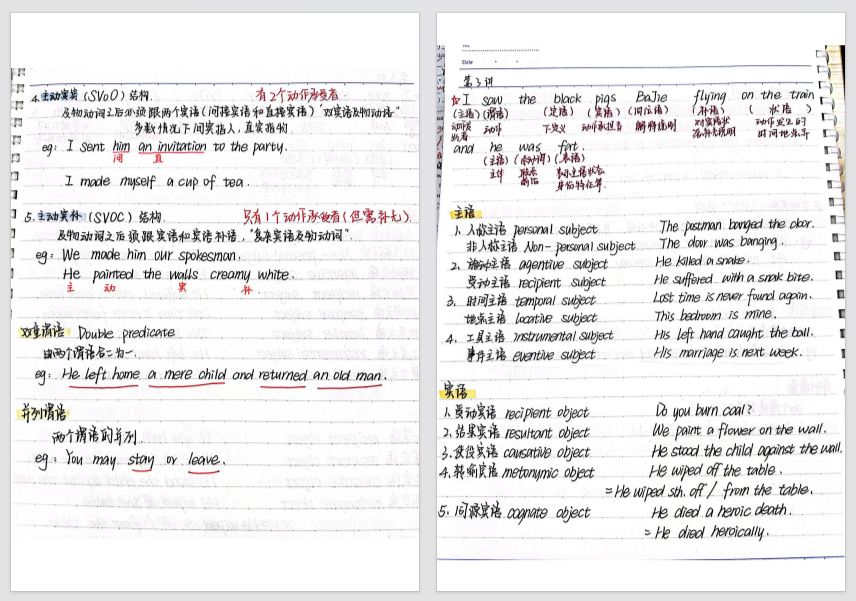 4. 主动宾宾 (SVoO) 结构.
有2个动作承受者.
及物动词之后必须跟两个宾语 (间接宾语和直接宾语) "双宾语及物动语"
多数情况下间宾指人, 直宾指物.
eg: I sent him an invitation to the party.
间 直
I made myself a cup of tea.
5. 主动宾补 (SVOC) 结构.
只有1个动作承受者 (但需补充).
及物动词之后须跟宾语和宾语补语, "复杂宾语及物动词".
eg: We made him our spokesman.
He painted the walls creamy white.
主 动 宾 补.
双重谓语 Double predicate
由两个谓语合二为一.
eg: He left home a mere child and returned an old man.
并列谓语
两个谓语的并列.
eg: You may stay or leave.
No.
Date
第3讲
I saw the black pigs BaJie flying on the train
(主语) (谓语) (定语) (宾语) (同位语) (补语) ( 状语 )
动作 下定义 动作承担者 解释说明 动作发生的
时间地点等
and he was fat.
(主语) (表语)
主体 表示主语状态
身份特征等.
主语
1. 人称主语 personal subject The postman banged the door.
非人称主语 Non-personal subject The door was banging.
2. 施动主语 agentive subject He killed a snake.
受动主语 recipient subject He suffered with a snak bite.
3. 时间主语 temporal subject Lost time is never found again.
地点主语 locative subject This bedroom is mine.
4. 工具主语 instrumental subject His left hand caught the ball.
事件主语 eventive subject His marriage is next week.
宾语
1. 受动宾语 recipient object Do you burn coal?
2. 结果宾语 resultant object We paint a flower on the wall.
3. 使役宾语 causative object He stood the child against the wall.
4. 转喻宾语 metonymic object He wiped off the table.
= He wiped sth. off / from the table.
5. 同源宾语 cognate object He died a heroic death.
= He died heroically.